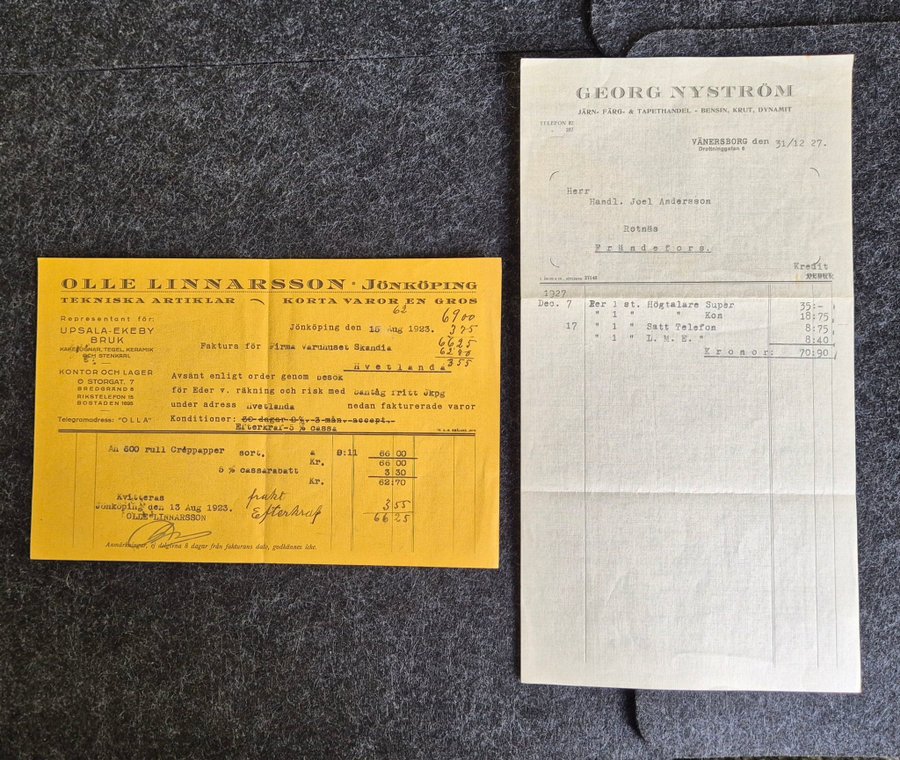 OLLE LINNARSSON · JÖNKÖPING
TEKNISKA ARTIKLAR KORTA VAROR EN GROS
Representant för:
UPSALA-EKEBY
BRUK
KAKELUGNAR, TEGEL, KERAMIK
OCH STENKÄRL
KONTOR OCH LAGER
Ö STORGAT. 7
BREDGRÄND 5
RIKSTELEFON 15
BOSTADEN 1695
Telegramadress: "OLLA"
62
6900
375
6625
6270
355
Jönköping den 15 Aug 1923.
Faktura för Firma Varuhuset Skandia
Hvetlanda
Avsänt enligt order genom besök
för Eder v. räkning och risk med Gantåg fritt Jkpg
under adress Hvetlanda nedan fakturerade varor
Konditioner: 30 dagar 2%, 3 mån. accept.
Efterkraf-5 % cassa
An 600 rull Créppapper sort. a 0:11 66 00
Kr. 66 00
5 % cassarabatt 3 30
Kr. 62:70
Kvitteras
Jönköping den 13 Aug 1923.
OLLE LINNARSSON
frakt
Efterkraf
3 55
66 25
Anmärkningar, ej delgivna 8 dagar från fakturans dato, godkännes icke.
GEORG NYSTRÖM
JÄRN- FÄRG- & TAPETHANDEL - BENSIN, KRUT, DYNAMIT
TELEFON 81
" 287
VÄNERSBORG den 31/12 27.
Drottninggatan 6
Herr
Handl. Joel Andersson
Rotnäs
Frändefors.
Kredit
DEBET
1927
Dec. 7 Eer 1 st. Högtalare Super 35:-
" 1 " " Kon 18:75
17 " 1 " Satt Telefon 8:75
" 1 " L.M.E. " 8:40
Kronor: 70:90